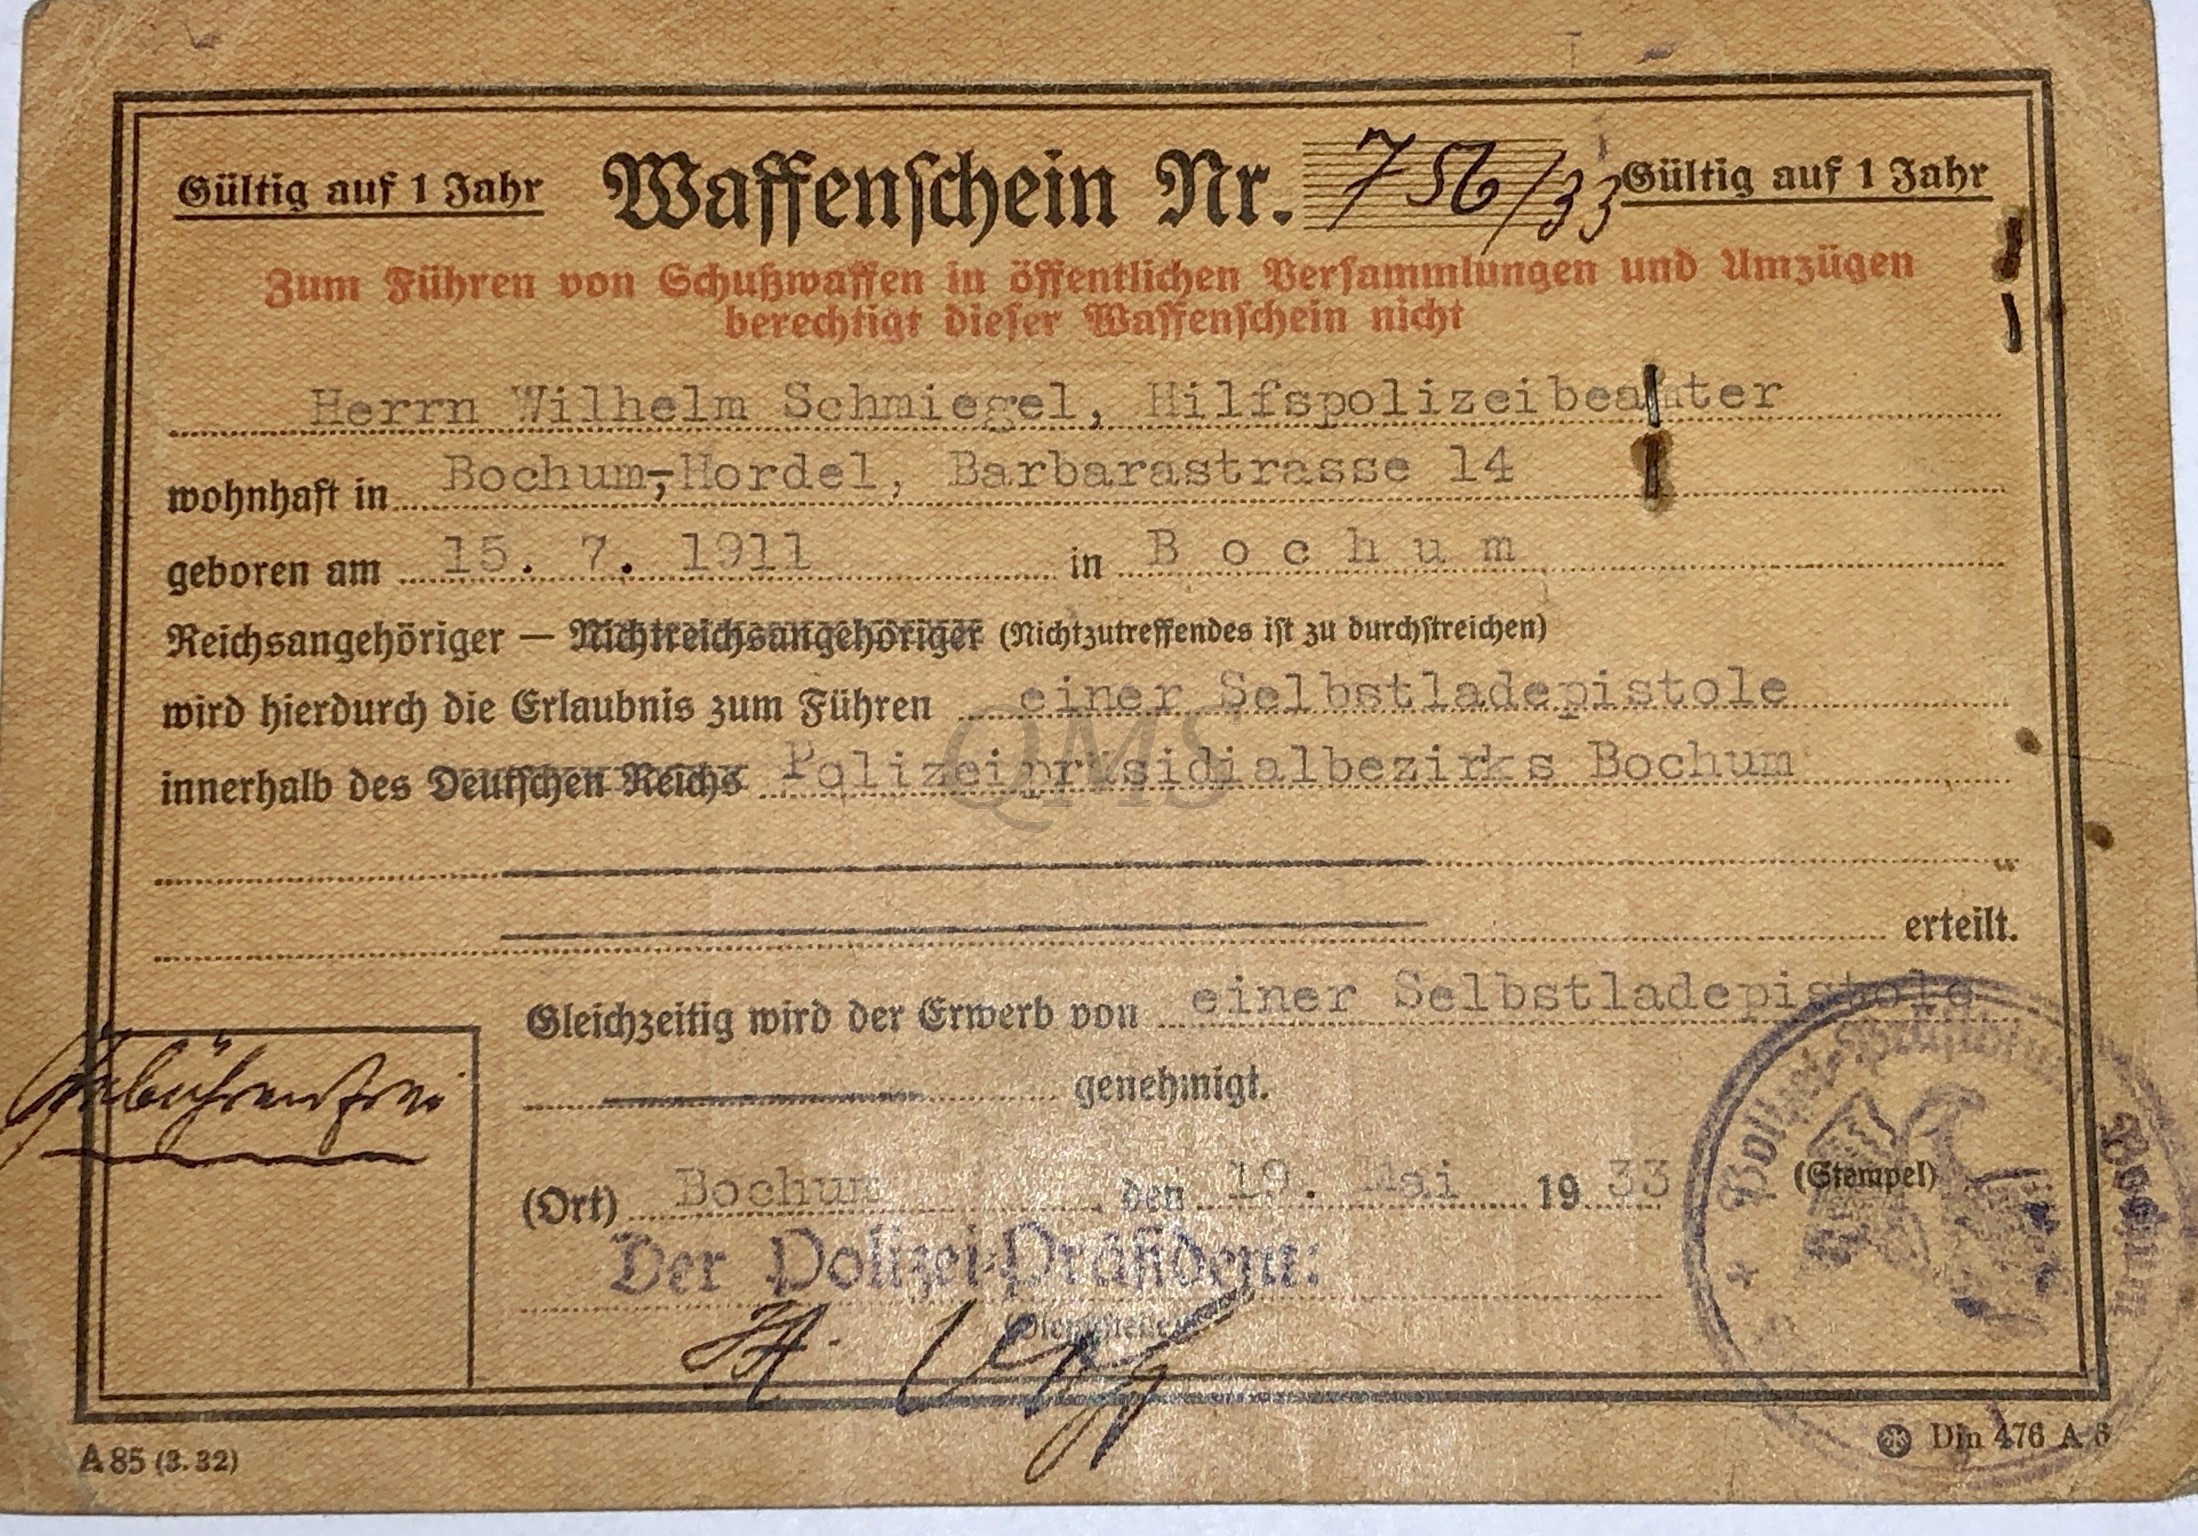 Gültig auf 1 Jahr Waffenschein Nr. 756/33 Gültig auf 1 Jahr
Zum Führen von Schußwaffen in öffentlichen Versammlungen und Umzügen
berechtigt dieser Waffenschein nicht
Herrn Wilhelm Schmiegel, Hilfspolizeibeamter
wohnhaft in Bochum-Hordel, Barbarastrasse 14
geboren am 15. 7. 1911 in Bochum
Reichsangehöriger — Nichtreichsangehöriger (Nichtzutreffendes ist zu durchstreichen)
wird hierdurch die Erlaubnis zum Führen einer Selbstladepistole
innerhalb des Deutschen Reichs Polizeipräsidialbezirks Bochum
QMS
erteilt.
Gleichzeitig wird der Erwerb von einer Selbstladepistole
Gebührenfrei
genehmigt.
(Ort) Bochum, den 19. Mai 1933 (Stempel)
Polizei-Präsidium Bochum
Der Polizei-Präsident:
(Dienststelle)
A 85 (3. 32) Din 476 A 6